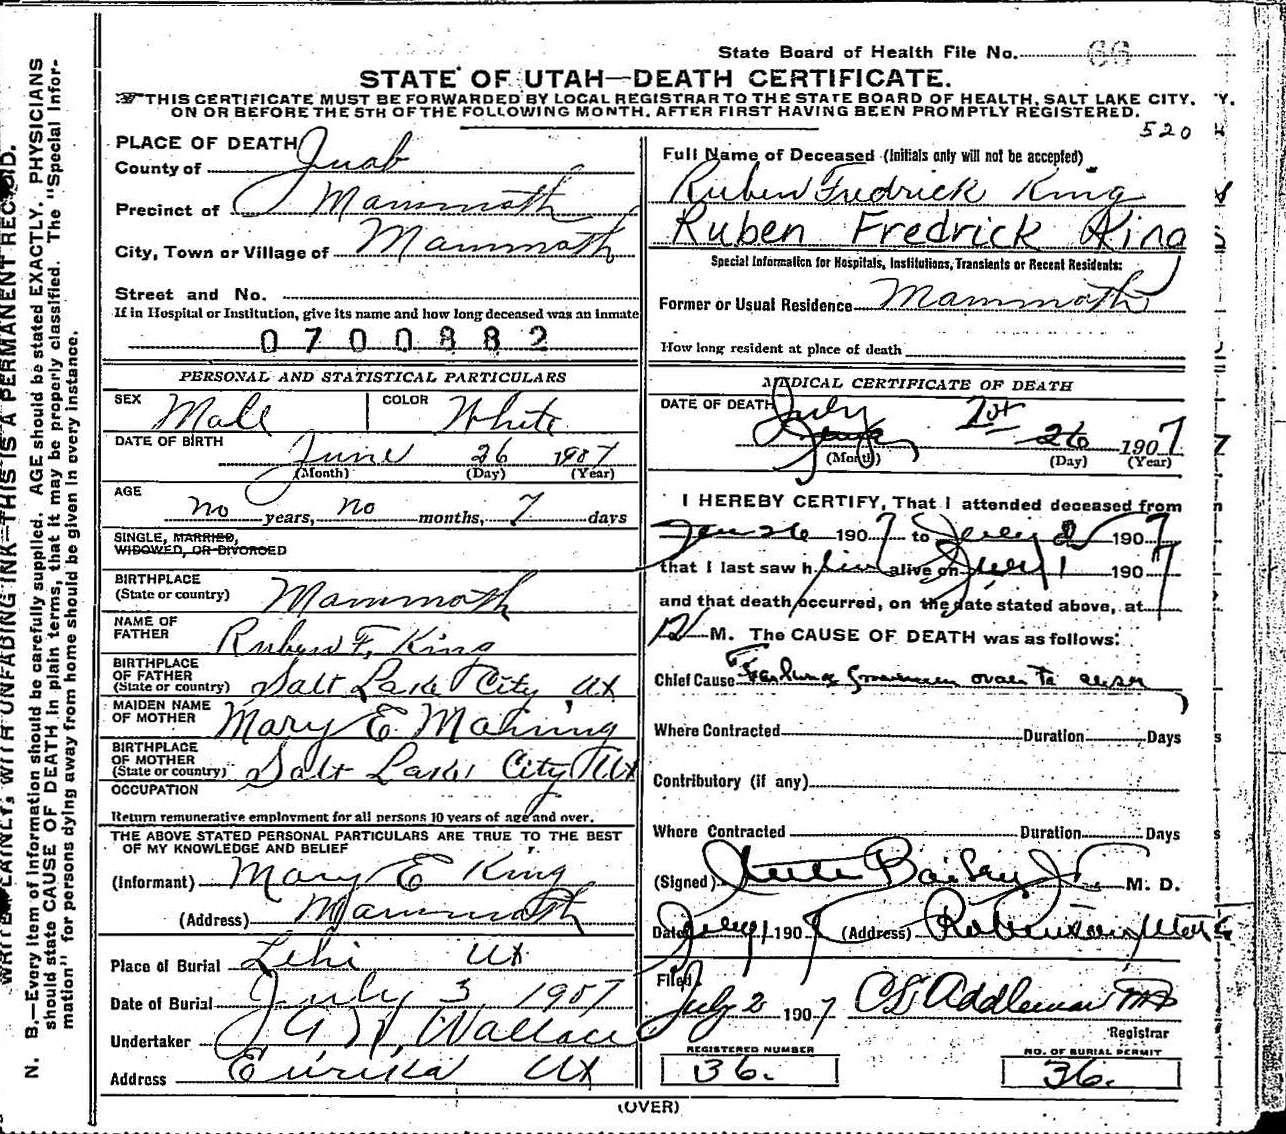 State Board of Health File No. 66
STATE OF UTAH—DEATH CERTIFICATE.
THIS CERTIFICATE MUST BE FORWARDED BY LOCAL REGISTRAR TO THE STATE BOARD OF HEALTH, SALT LAKE CITY.
ON OR BEFORE THE 5TH OF THE FOLLOWING MONTH. AFTER FIRST HAVING BEEN PROMPTLY REGISTERED.
520
PLACE OF DEATH
County of Juab
Precinct of Mammoth
City, Town or Village of Mammoth
Street and No.
If in Hospital or Institution, give its name and how long deceased was an inmate
0700882
Full Name of Deceased (Initials only will not be accepted)
Ruben Fredrick King
Ruben Fredrick King
Special Information for Hospitals, Institutions, Transients or Recent Residents:
Former or Usual Residence Mammoth
How long resident at place of death
PERSONAL AND STATISTICAL PARTICULARS
SEX Male COLOR White
DATE OF BIRTH
June 26 1907
(Month) (Day) (Year)
AGE
no years, no months, 7 days
SINGLE, MARRIED,
WIDOWED, OR DIVORCED
BIRTHPLACE
(State or country) Mammoth
NAME OF
FATHER Ruben F. King
BIRTHPLACE
OF FATHER
(State or country) Salt Lake City Ut
MAIDEN NAME
OF MOTHER Mary E
BIRTHPLACE
OF MOTHER
(State or country) Salt Lake City Ut
OCCUPATION
Return remunerative employment for all persons 10 years of age and over.
THE ABOVE STATED PERSONAL PARTICULARS ARE TRUE TO THE BEST
OF MY KNOWLEDGE AND BELIEF
(Informant) Mary E King
(Address) Mammoth
Place of Burial Lehi Ut
Date of Burial July 3, 1907
Undertaker Wallace
Address Eurika Ut
MEDICAL CERTIFICATE OF DEATH
DATE OF DEATH July 1st
26 1907
(Month) (Day) (Year)
I HEREBY CERTIFY, That I attended deceased from
26 1907 to 1907
that I last saw him alive on July 1 1907
and that death occurred, on the date stated above, at
12 M. The CAUSE OF DEATH was as follows:
Chief Cause
Where Contracted Duration Days
Contributory (if any)
Where Contracted Duration Days
(Signed) Bailey Jr. M. D.
Date July 1 1907 (Address) Robinson, Utah
Filed
July 2 1907 Addleman MD
Registrar
REGISTERED NUMBER
36.
NO. OF BURIAL PERMIT
36.
(OVER)
WRITE PLAINLY, WITH UNFADING INK—THIS IS A PERMANENT RECORD.
N. B.—Every item of information should be carefully supplied. AGE should be stated EXACTLY. PHYSICIANS
should state CAUSE OF DEATH in plain terms, that it may be properly classified. The "Special Infor-
mation" for persons dying away from home should be given in every instance.